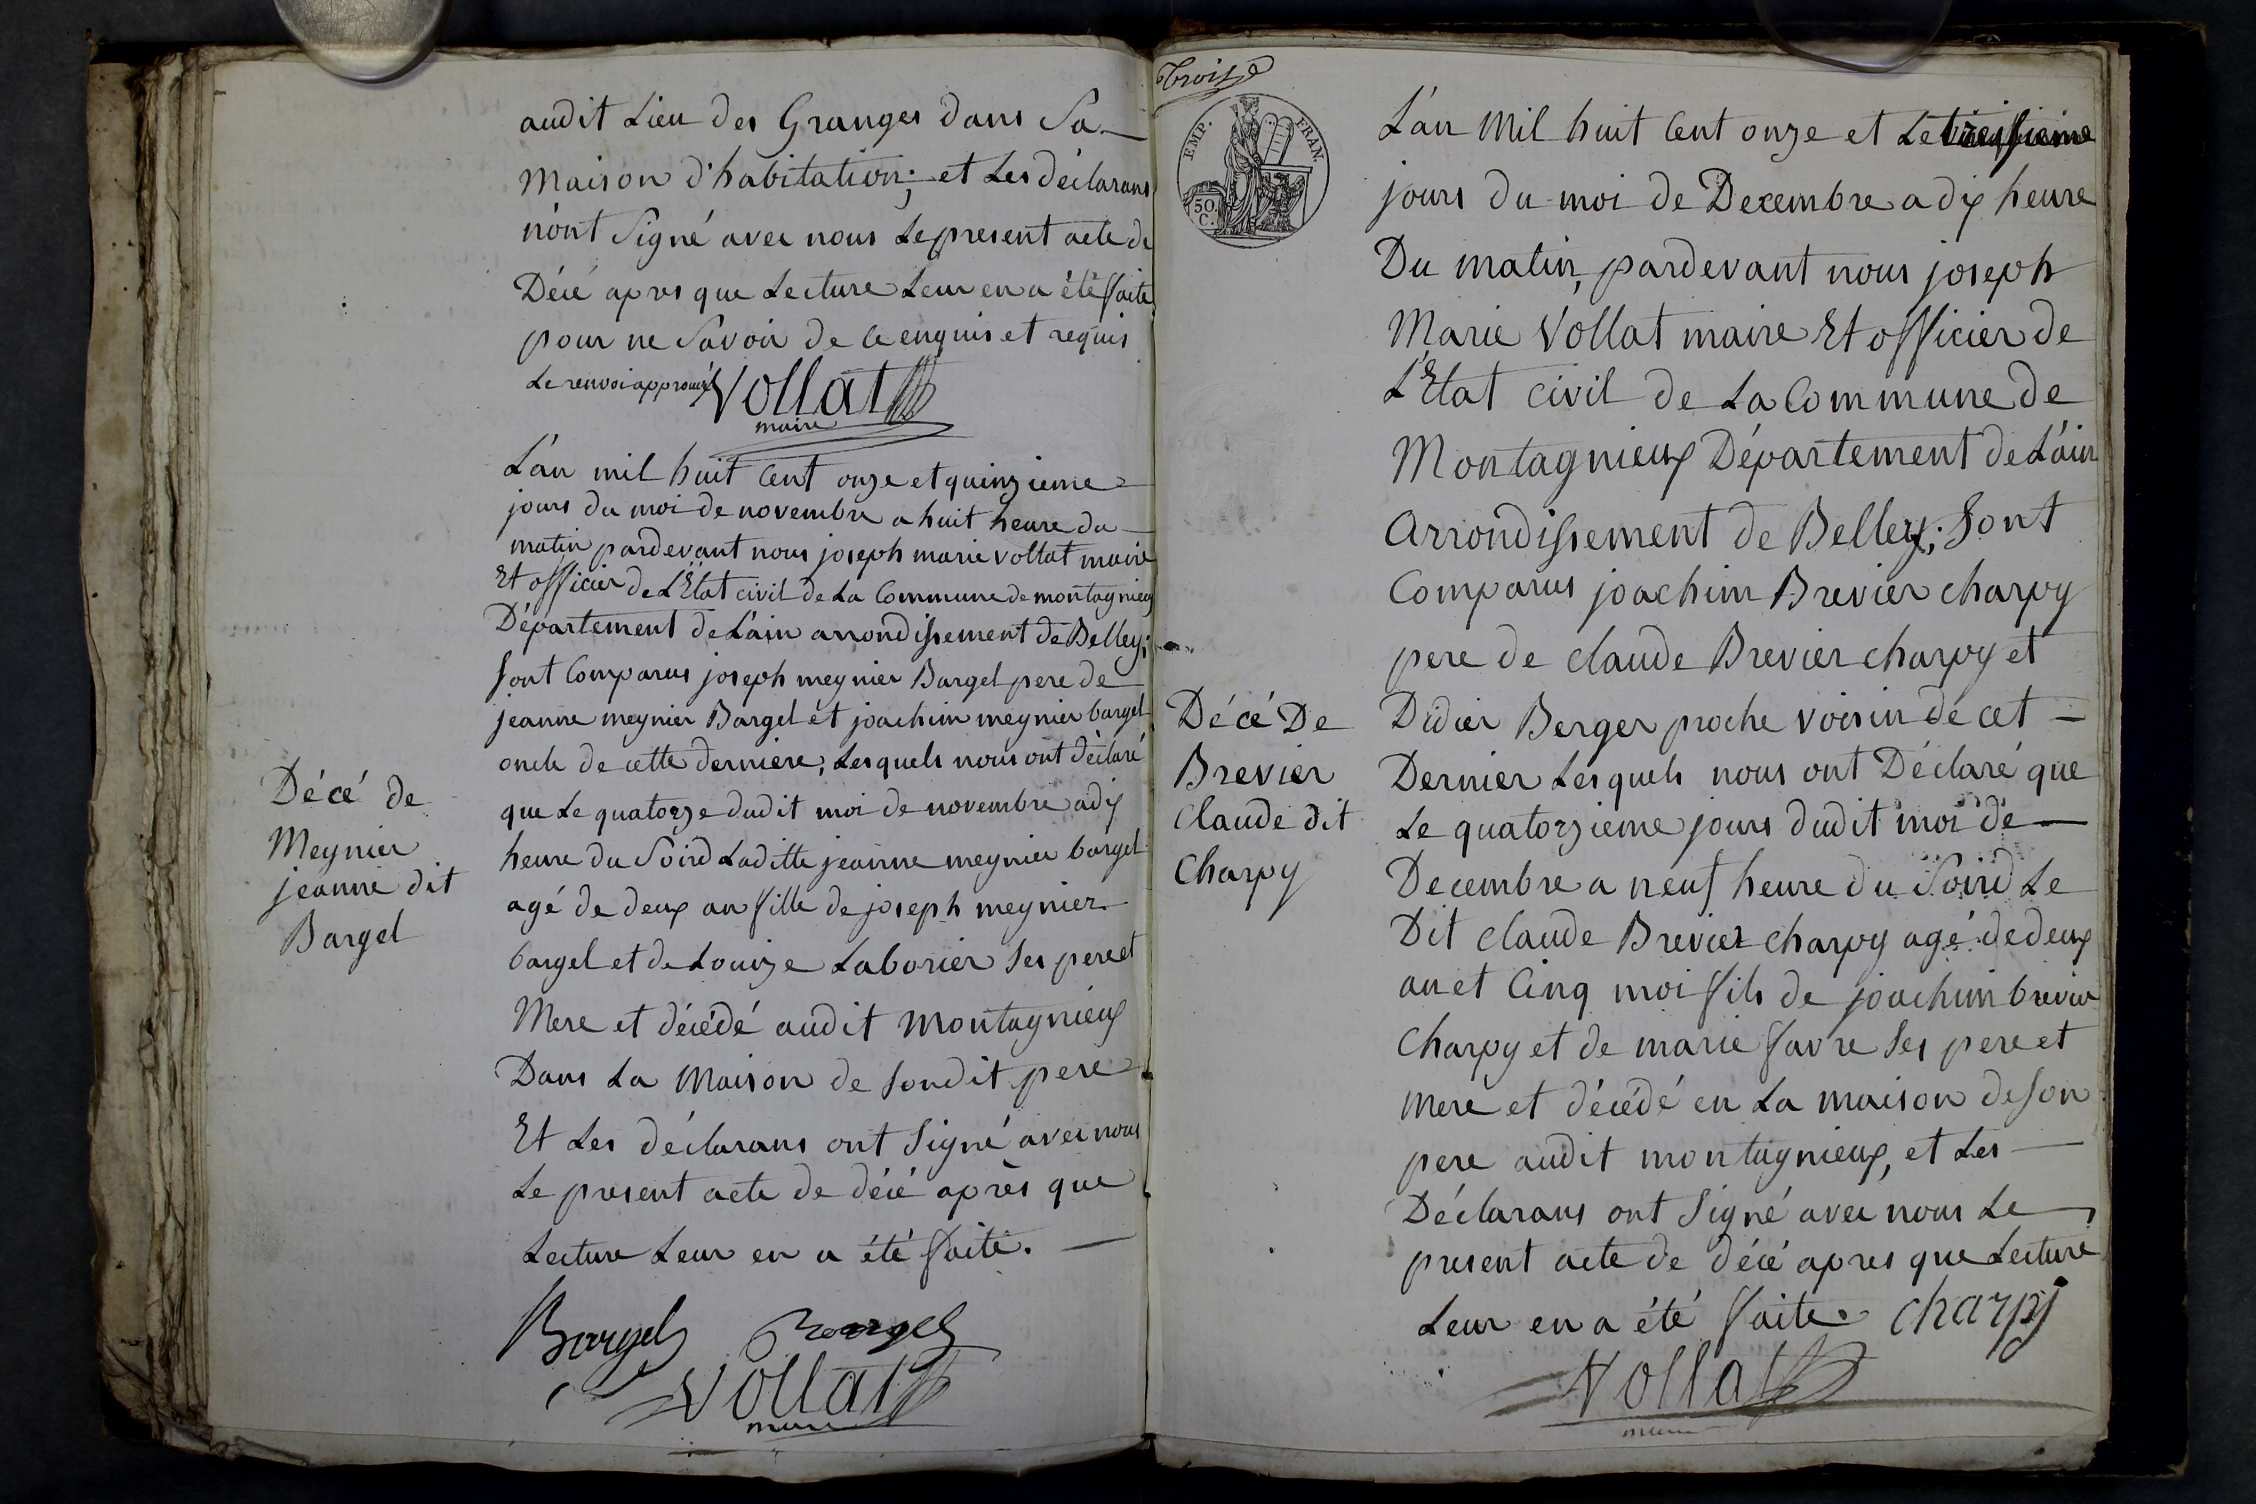 audit Lieu des Granges dans Sa
Maison d'habitation; et Les déclarans
n'ont Signé avec nous Le present acte de
Décé apres que Lecture Leur en a été faite
pour ne Savoir de ce enquis et requis
Le renvoi approuvé Vollat
maire
L'an mil huit Cent onze et quinzieme
jours du moi de novembre a huit heure du
matin pardevant nous joseph marie vollat maire
Et officier de L'Etat civil de La Commune de montagnieux
Département de L'ain arrondissement de Belley;
Sont Comparus joseph meynier Bargel pere de
jeanne meynier Bargel et joachim meynier bargel
oncle de cette derniere, Lesquels nous ont déclaré
que Le quatorze dudit moi de novembre a dix
heure du Soird Laditte jeanne meynier bargel
agé de deux an fille de joseph meynier
bargel et de Louize Laborier Ses pere et
Mere et décédé audit Montagnieux
Dans La Maison de Sondit pere
Et Les déclarans ont Signé avec nous
Le present acte de décé après que
Lecture Leur en a été faite.
Décé de
Meynier
jeanne dit
Bargel
Bargel Bargel
Vollat
maire
Troisе
EMP. FRAN.
50.
C.
L'an Mil huit Cent onze et Le
jours du moi de Decembre a dix heure
Du matin, pardevant nous joseph
Marie Vollat maire Et officier de
L'Etat civil de La Commune de
Montagnieux Département de L'ain
arrondissement de Belley; Sont
Comparus joachim Brevier charpy
pere de claude Brevier charpy et
Didier Berger proche voisin de cet
Dernier Lesquels nous ont Déclaré que
Le quatorzieme jours dudit moi de
Decembre a neuf heure du Soird Le
Dit claude Brevier charpy agé de deux
an et Cinq moi fils de joachim brevier
Charpy et de marie favre Ses pere et
mere et décédé en La maison de Son
pere audit montagnieux, et Les
Déclarans ont Signé avec nous Le
present acte de décé apres que Lecture
Leur en a été faite. charpy
Décé De
Brevier
Claude dit
Charpy
Vollat
maire